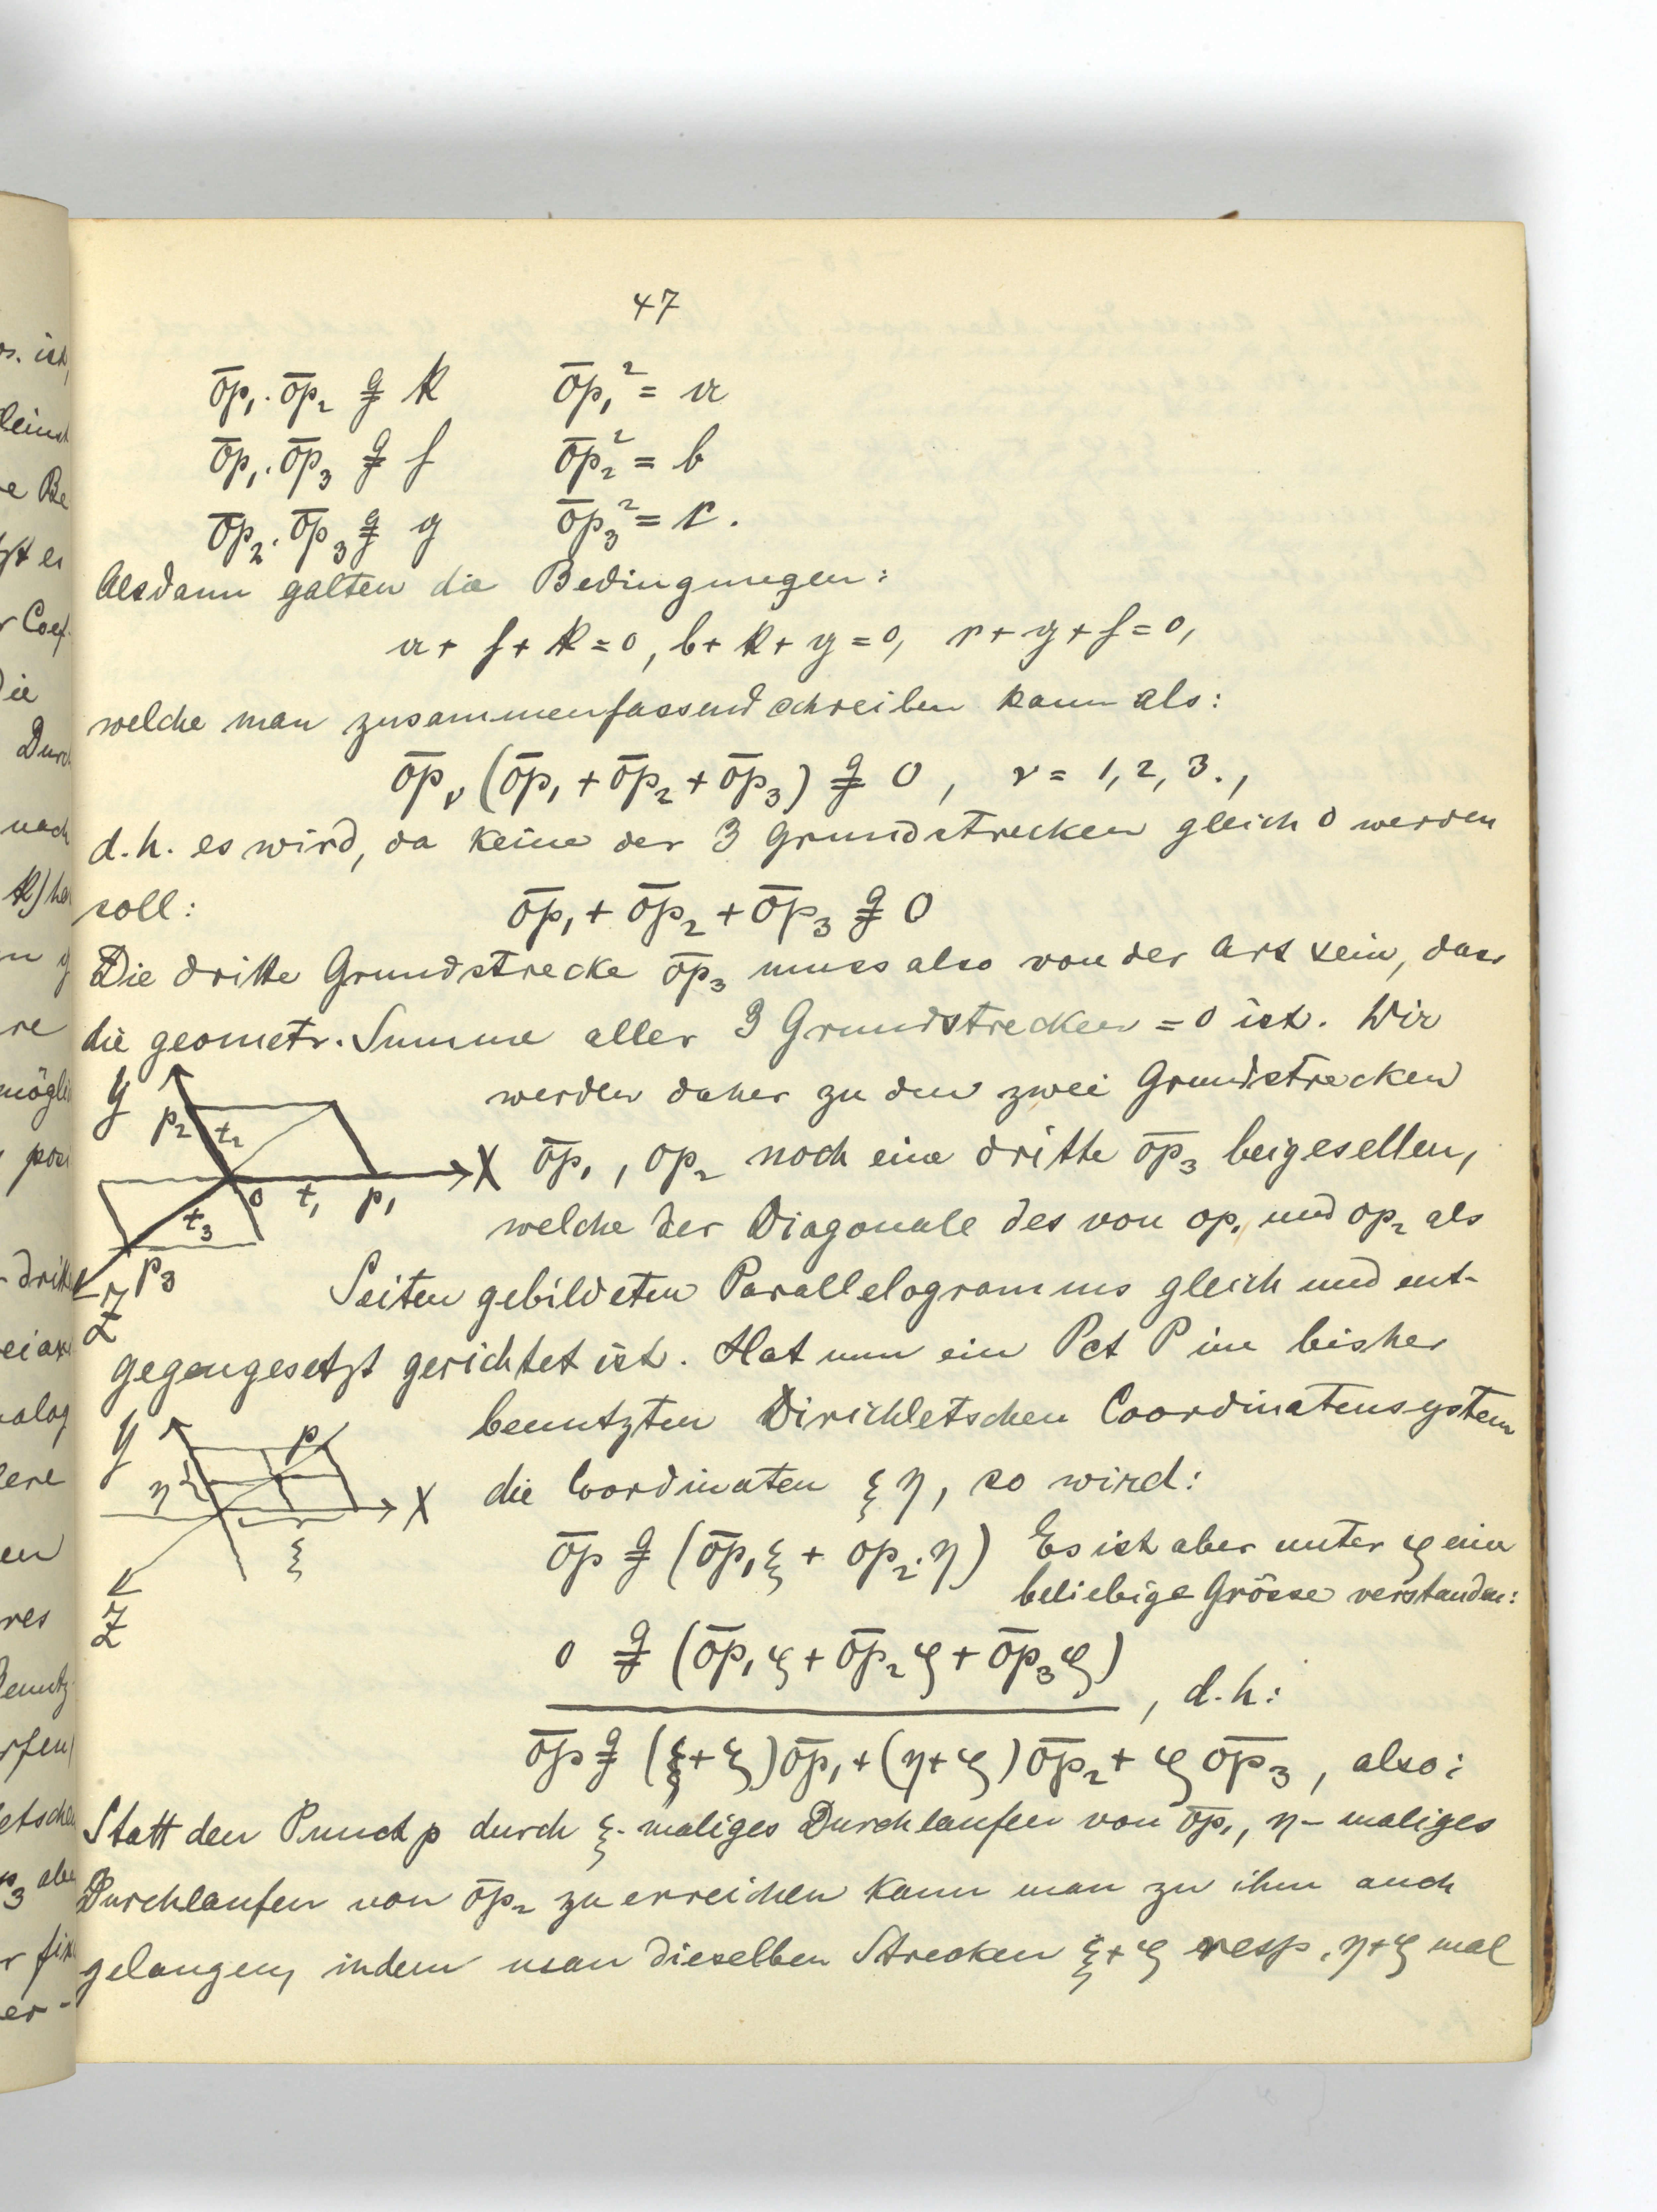 47
o̅p̅₁ · o̅p̅₂ g= k      o̅p̅₁² = a
o̅p̅₁ · o̅p̅₃ g= f      o̅p̅₂² = b
o̅p̅₂ · o̅p̅₃ g= g      o̅p̅₃² = c.
Alsdann galten die Bedingungen:
a + f + k = 0, b + k + g = 0, c + g + f = 0,
welche man zusammenfassend schreiben kann als:
o̅p̅ᵥ (o̅p̅₁ + o̅p̅₂ + o̅p̅₃) g= 0, ν = 1, 2, 3.,
d.h. es wird, da keine der 3 Grundstrecken gleich 0 werden
soll: o̅p̅₁ + o̅p̅₂ + o̅p̅₃ g= 0
Die dritte Grundstrecke o̅p̅₃ muss also von der Art sein, dass
die geometr. Summe aller 3 Grundstrecken = 0 ist. Wir
werden daher zu den zwei Grundstrecken
o̅p̅₁, op₂ noch eine dritte o̅p̅₃ beigesellen,
welche der Diagonale des von op₁ und op₂ als
Seiten gebildeten Parallelogramms gleich und ent-
gegengesetzt gerichtet ist. Hat nun ein Pct P im bisher
benutzten Dirichletschen Coordinatensystem
die Coordinaten ξ η, so wird:
o̅p̅ g= (o̅p̅₁ξ + op₂·η) Es ist aber unter ζ eine
beliebige Grösse verstanden:
0 g= (o̅p̅₁ζ + o̅p̅₂ζ + o̅p̅₃ζ)
, d.h:
o̅p̅ g= (ξ+ζ)o̅p̅₁ + (η+ζ)o̅p̅₂ + ζ o̅p̅₃, also:
Statt den Punct p durch ξ-maliges Durchlaufen von o̅p̅₁, η-maliges
Durchlaufen von o̅p̅₂ zu erreichen kann man zu ihm auch
gelangen, indem man dieselben Strecken ξ+ζ resp. η+ζ mal
y
p₂ t₂
X
0 t₁ p₁
t₃
p₃
Z
y
p
η
X
ξ
Z